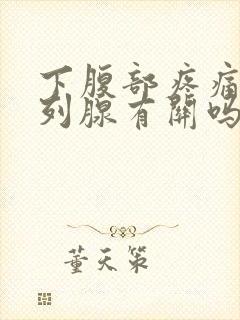 下腹部疼痛
列腺有關吗
董天策